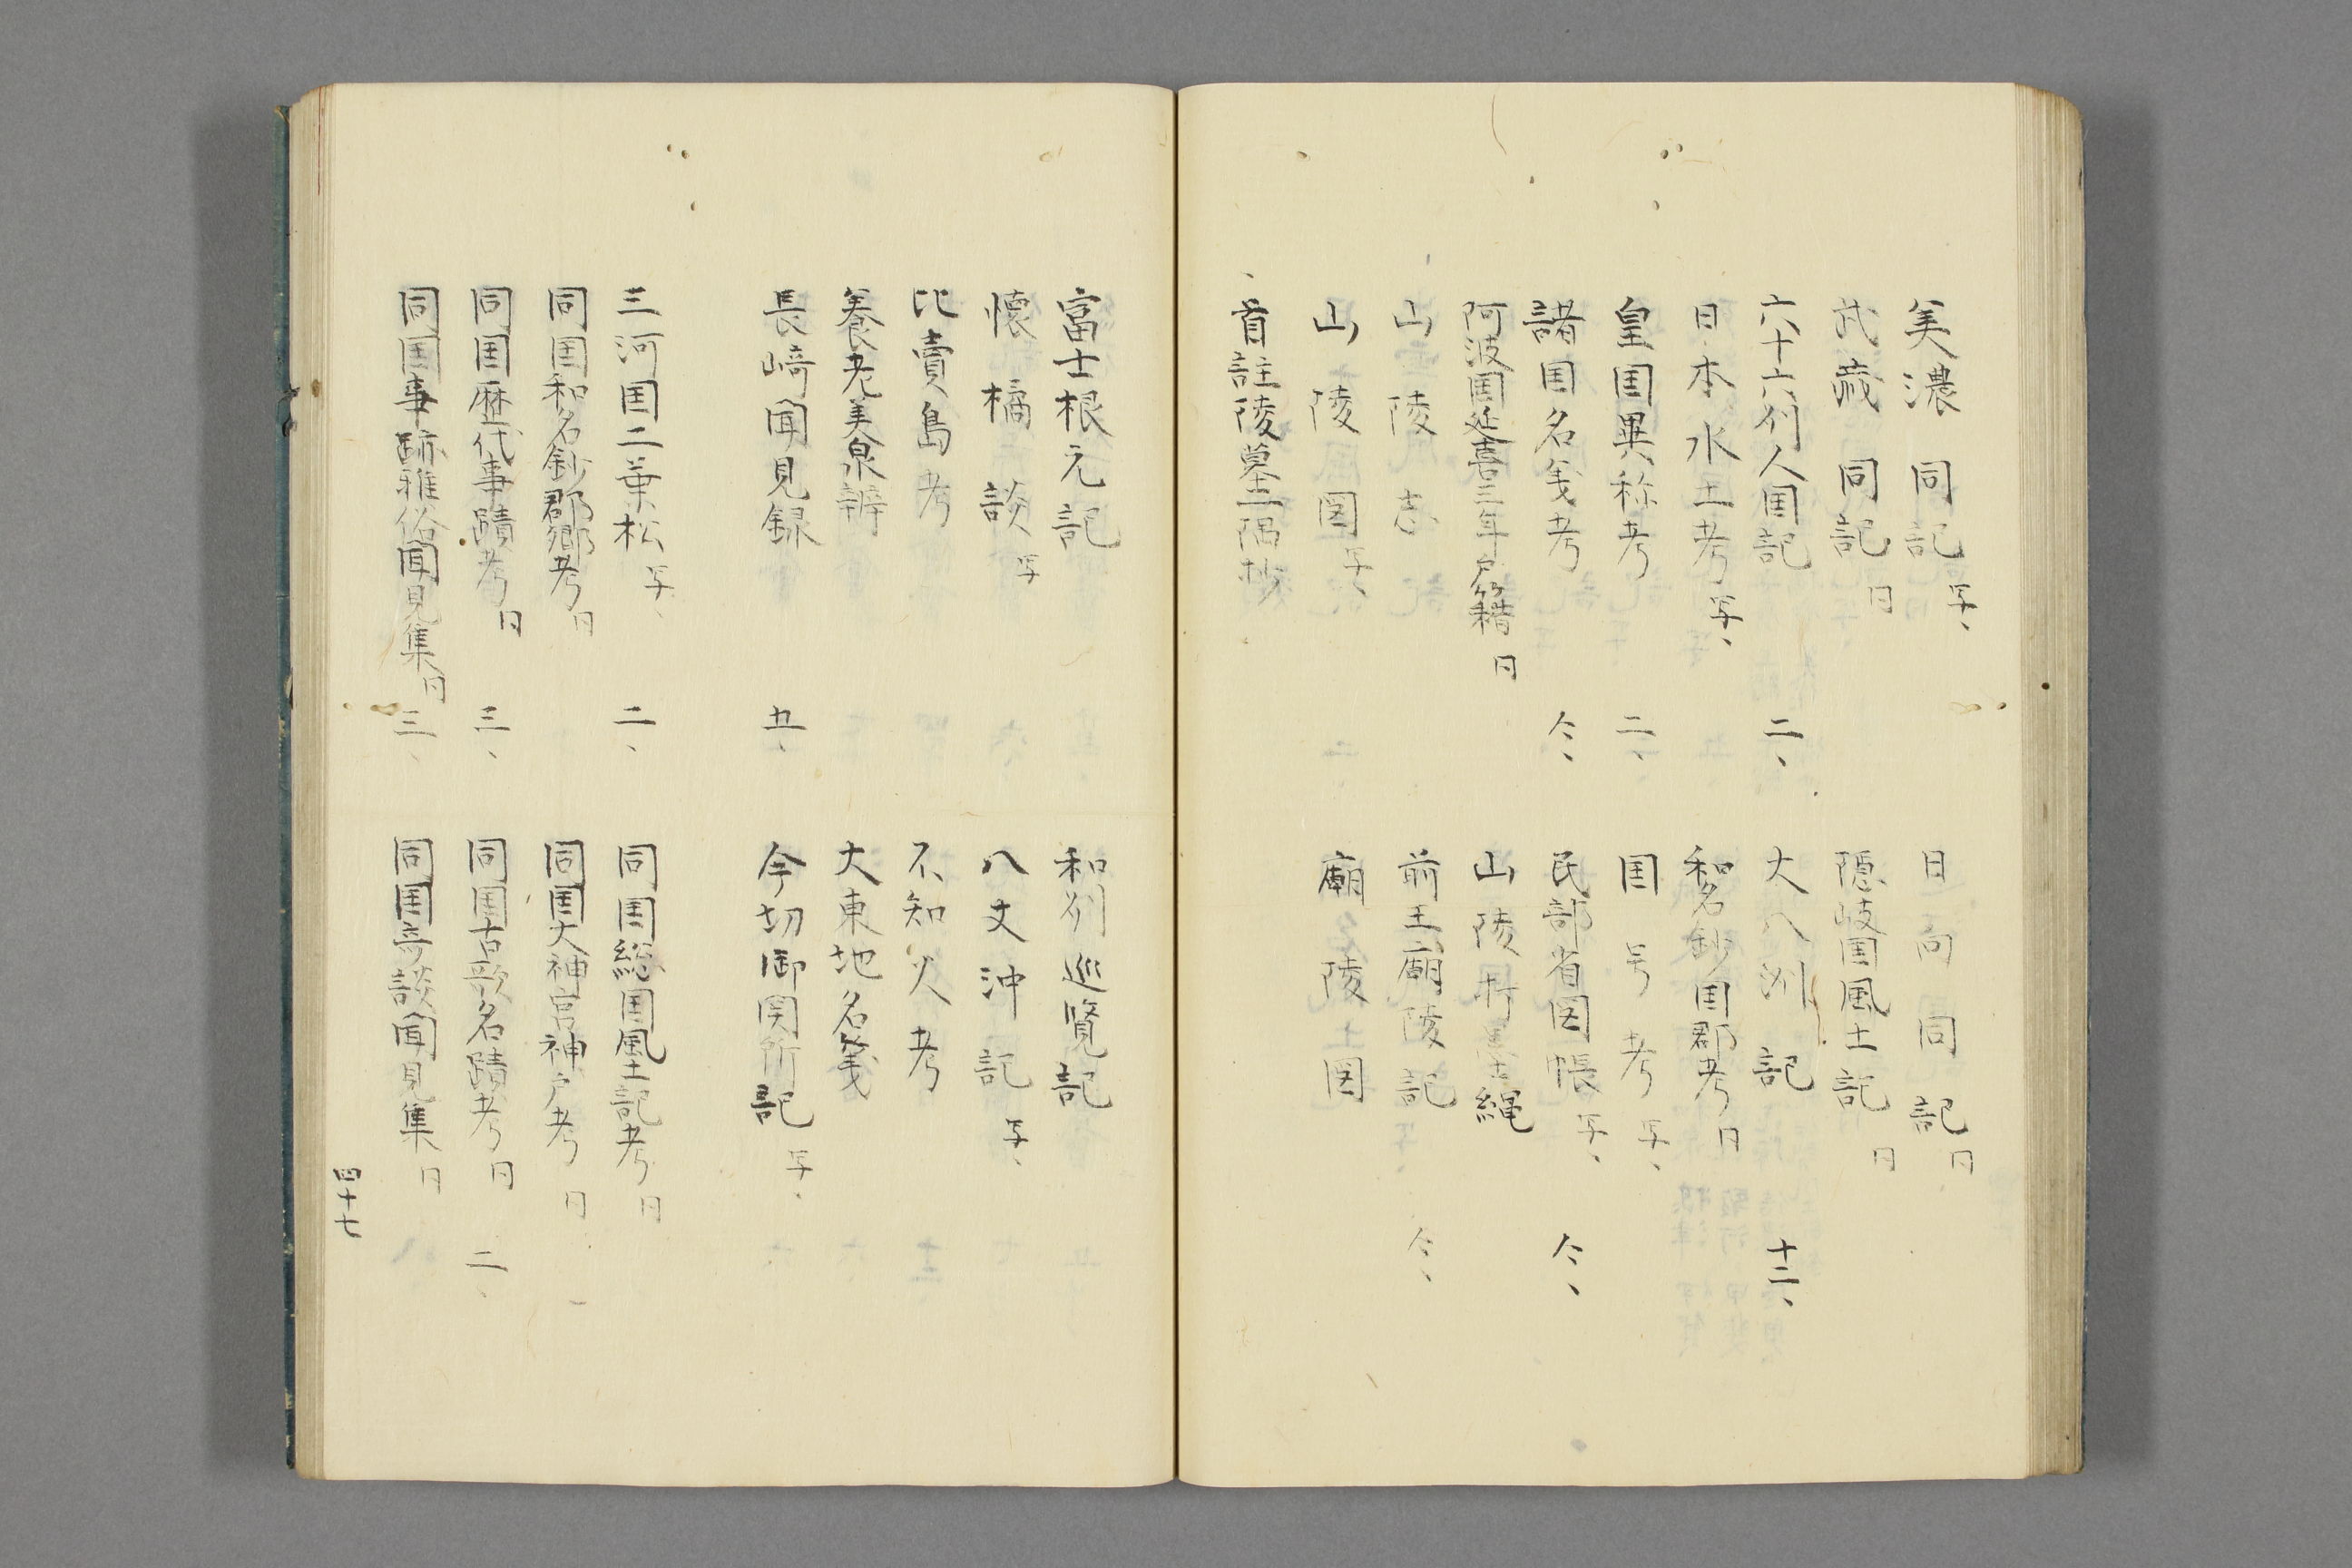 美濃同記 写、
武蔵同記 同
六十六州人国記 二、
日本水土考 写、
皇国異称考 二、
諸国名義考 仝、
阿波国延喜三年戸籍 同
山陵志
山陵図 写、
、首註陵墓一隅抄
日向国同記 同
隠岐国風土記 同
大八洲記 十二、
和名鈔国郡考 同
国号考 写、
民部省図帳 写、 仝、
山陵折墨縄
前王廟陵記 仝、
廟陵図
富士根元記
懐橘談 写
比売島考
養老美泉辨
長崎聞見録 五、
三河国二葉松 写、 二、
同国和名鈔郡郷考 同
同国歴代事蹟考 同 三、
同国事跡雅俗聞見集 同 三、
和州巡覧記
八丈沖記 写、
不知火考
大東地名箋
今切御関所記 写、
同国総国風土記考 同
同国大神宮神戸考 同
同国古歌名蹟考 同 二、
同国奇談聞見集 同
四十七